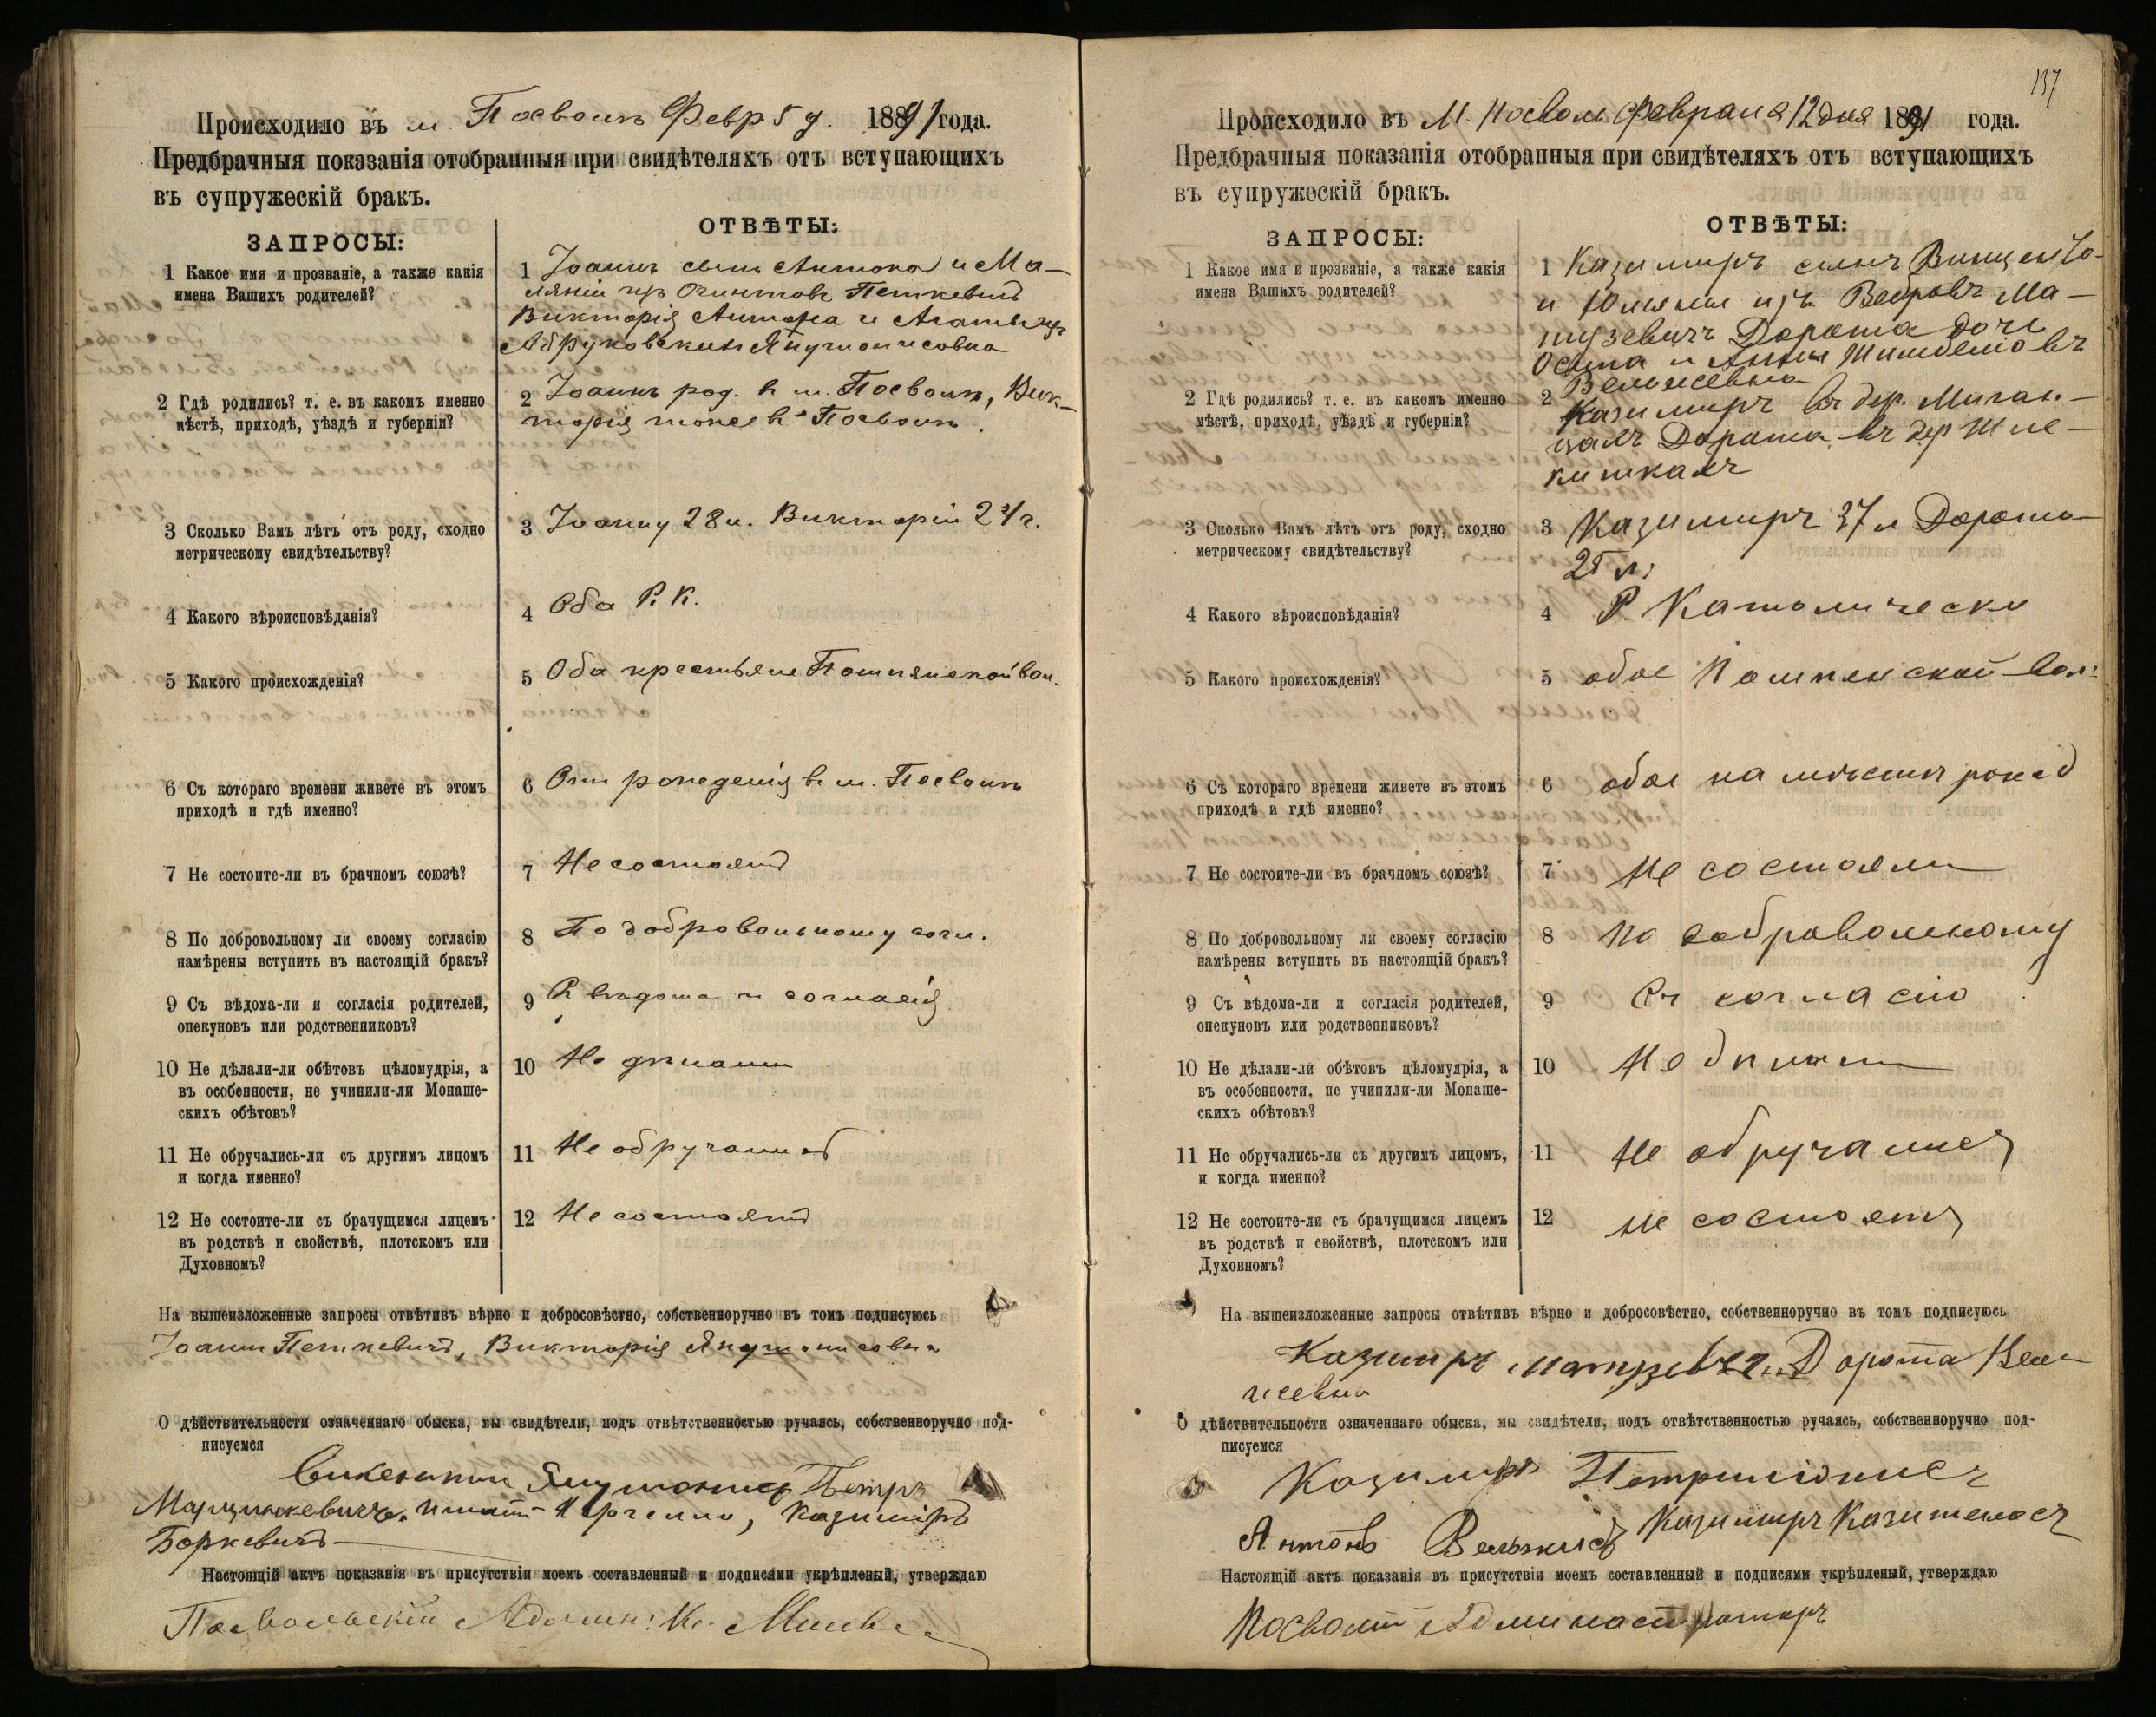 Происходило въ м. Посволь Февр 5 д. 1891 года.
Предбрачныя показанія отобранныя при свидѣтеляхъ отъ вступающихъ
въ супружескій бракъ.
ЗАПРОСЫ:
ОТВѢТЫ:
1 Какое имя и прозваніе, а также какія
имена Вашихъ родителей?
1 Іоаннъ сынъ Антона и Ма-
Петкевичъ
Викторія Антона и Агаты изъ
2 Гдѣ родились? т. е. въ какомъ именно
мѣстѣ, приходѣ, уѣздѣ и губерніи?
2 Іоаннъ род. в м. Посволь, Вик-
торія тоже в Посволь.
3 Сколько Вамъ лѣтъ отъ роду, сходно
метрическому свидѣтельству?
3 Іоанну 28 л. Викторіи 24 г.
4 Какого вѣроисповѣданія?
4 Оба Р. К.
5 Какого происхожденія?
5 Оба крестьяне вол.
6 Съ котораго времени живете въ этомъ
приходѣ и гдѣ именно?
6 От рожденія в м. Посволь
7 Не состоите-ли въ брачномъ союзѣ?
7 Не состоятъ
8 По добровольному ли своему согласію
намѣрены вступить въ настоящій бракъ?
8 По добровольному согл.
9 Съ вѣдома-ли и согласія родителей,
опекуновъ или родственниковъ?
9 С вѣдома и согласія
10 Не дѣлали-ли обѣтовъ цѣломудрія, а
въ особенности, не учинили-ли Монаше-
скихъ обѣтовъ?
10 Не дѣлали
11 Не обручались-ли съ другимъ лицомъ
и когда именно?
11 Не обручались
12 Не состоите-ли съ брачущимся лицемъ
въ родствѣ и свойствѣ, плотскомъ или
Духовномъ?
12 Не состоятъ
На вышеизложенные запросы отвѣтивъ вѣрно и добросовѣстно, собственноручно въ томъ подписуюсь
Іоанн Петкевичъ, Викторія
О дѣйствительности означеннаго обыска, мы свидѣтели, подъ отвѣтственностью ручаясь, собственноручно под-
писуемся
Петръ
Казиміръ
Боркевичъ
Настоящій актъ показанія въ присутствіи моемъ составленный и подписями укрѣпленый, утверждаю
Посвольскій Админ: Кс.
137
Происходило въ М. Посволь Февраля 12 дня 1891 года.
Предбрачныя показанія отобранныя при свидѣтеляхъ отъ вступающихъ
въ супружескій бракъ.
ЗАПРОСЫ:
ОТВѢТЫ:
1 Какое имя и прозваніе, а также какія
имена Вашихъ родителей?
1 Казимиръ сынъ Винцента
и изъ Ма-
тузевичъ Дорота дочь
Осипа и Анны
2 Гдѣ родились? т. е. въ какомъ именно
мѣстѣ, приходѣ, уѣздѣ и губерніи?
2 Казимиръ въ дер.
Дорота въ дер
3 Сколько Вамъ лѣтъ отъ роду, сходно
метрическому свидѣтельству?
3 Казимиръ 37 л Дорота
25 л:
4 Какого вѣроисповѣданія?
4 Р. Католическ
5 Какого происхожденія?
5 обое вол:
6 Съ котораго времени живете въ этомъ
приходѣ и гдѣ именно?
6 обое на мѣстѣ рожд
7 Не состоите-ли въ брачномъ союзѣ?
7 Не состояли
8 По добровольному ли своему согласію
намѣрены вступить въ настоящій бракъ?
8 По добровольному
9 Съ вѣдома-ли и согласія родителей,
опекуновъ или родственниковъ?
9 Съ согласію
10 Не дѣлали-ли обѣтовъ цѣломудрія, а
въ особенности, не учинили-ли Монаше-
скихъ обѣтовъ?
10 Не дѣлали
11 Не обручались-ли съ другимъ лицомъ,
и когда именно?
11 Не обручались
12 Не состоите-ли съ брачущимся лицемъ
въ родствѣ и свойствѣ, плотскомъ или
Духовномъ?
12 Не состоятъ
На вышеизложенные запросы отвѣтивъ вѣрно и добросовѣстно, собственноручно въ томъ подписуюсь
Казимръ Матузевичъ Дорота
О дѣйствительности означеннаго обыска, мы свидѣтели, подъ отвѣтственностью ручаясь, собственноручно под-
писуемся
Казимиръ
Антонъ Казимиръ
Настоящій актъ показанія въ присутствіи моемъ составленный и подписями укрѣпленый, утверждаю
Администраторъ